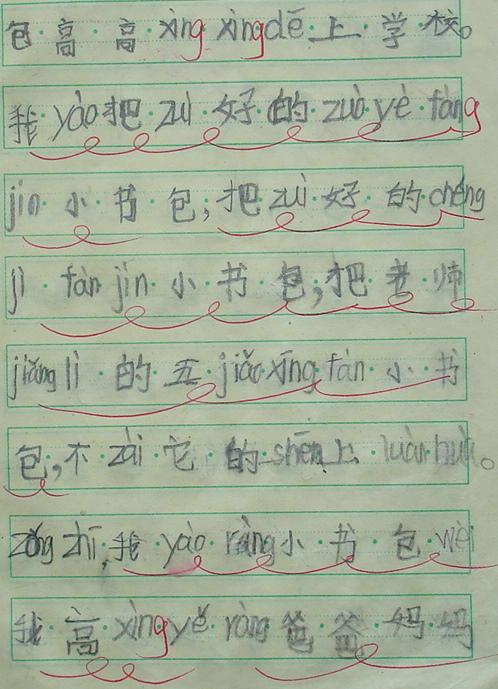 包高高xìng xìngdē上学校。
我yào把zuì好的zuò yè fàng
jìn小书包,把zuì好的chéng
jì fàn jìn小书包,把老师
jiǎng lì的五jiǎo xīng fàn小书
包,不zài它的shēn上luàn huà。
zǒng zhī,我yào ràng小书包wèi
我高xìng yě ràng爸爸妈妈